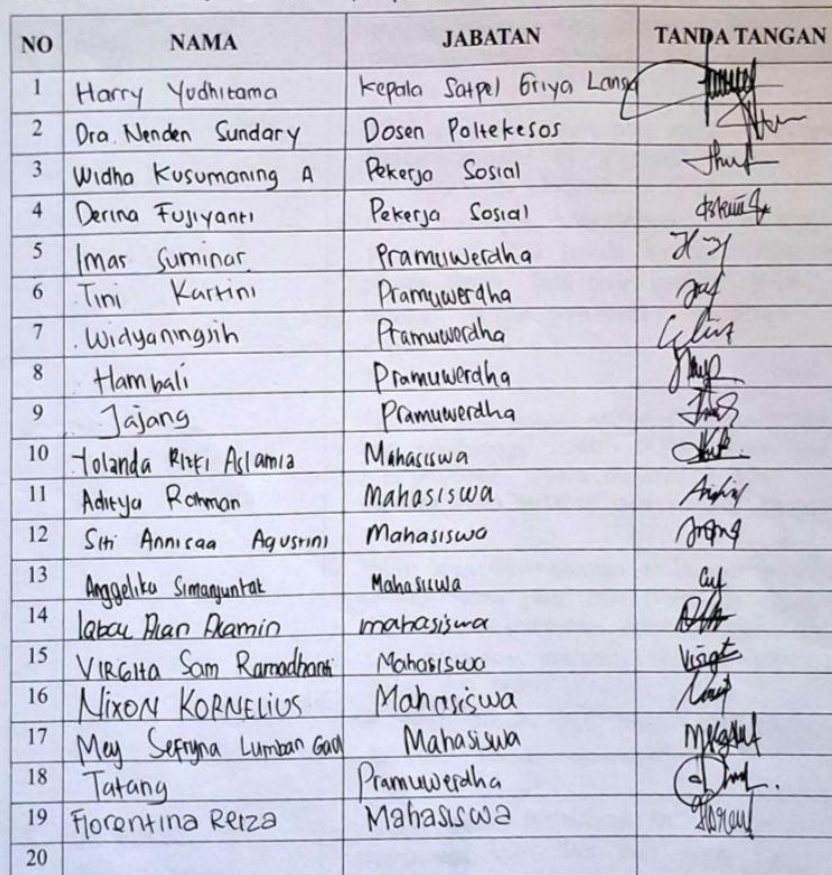 NO NAMA JABATAN TANDA TANGAN
1 Harry Yudhitama Kepala Satpel Griya Lansia
2 Dra. Nenden Sundary Dosen Poltekesos
3 Widha Kusumaning A Pekerja Sosial
4 Derina Fujiyanti Pekerja Sosial
5 Imas Suminar Pramuwerdha
6 Tini Kartini Pramuwerdha
7 Widyaningsih Pramuwerdha
8 Hambali Pramuwerdha
9 Jajang Pramuwerdha
10 Yolanda Rizki Aslamia Mahasiswa
11 Aditya Rohman Mahasiswa
12 Siti Annisaa Agustini Mahasiswa
13 Anggelika Simanjuntak Mahasiswa
14 Iqbal Mahasiswa
15 VIRGITA Sam Ramadhanti Mahasiswa
16 NIXON KORNELIUS Mahasiswa
17 Mey Sefryna Lumban Gaol Mahasiswa
18 Tatang Pramuwerdha
19 Florentina Reiza Mahasiswa
20